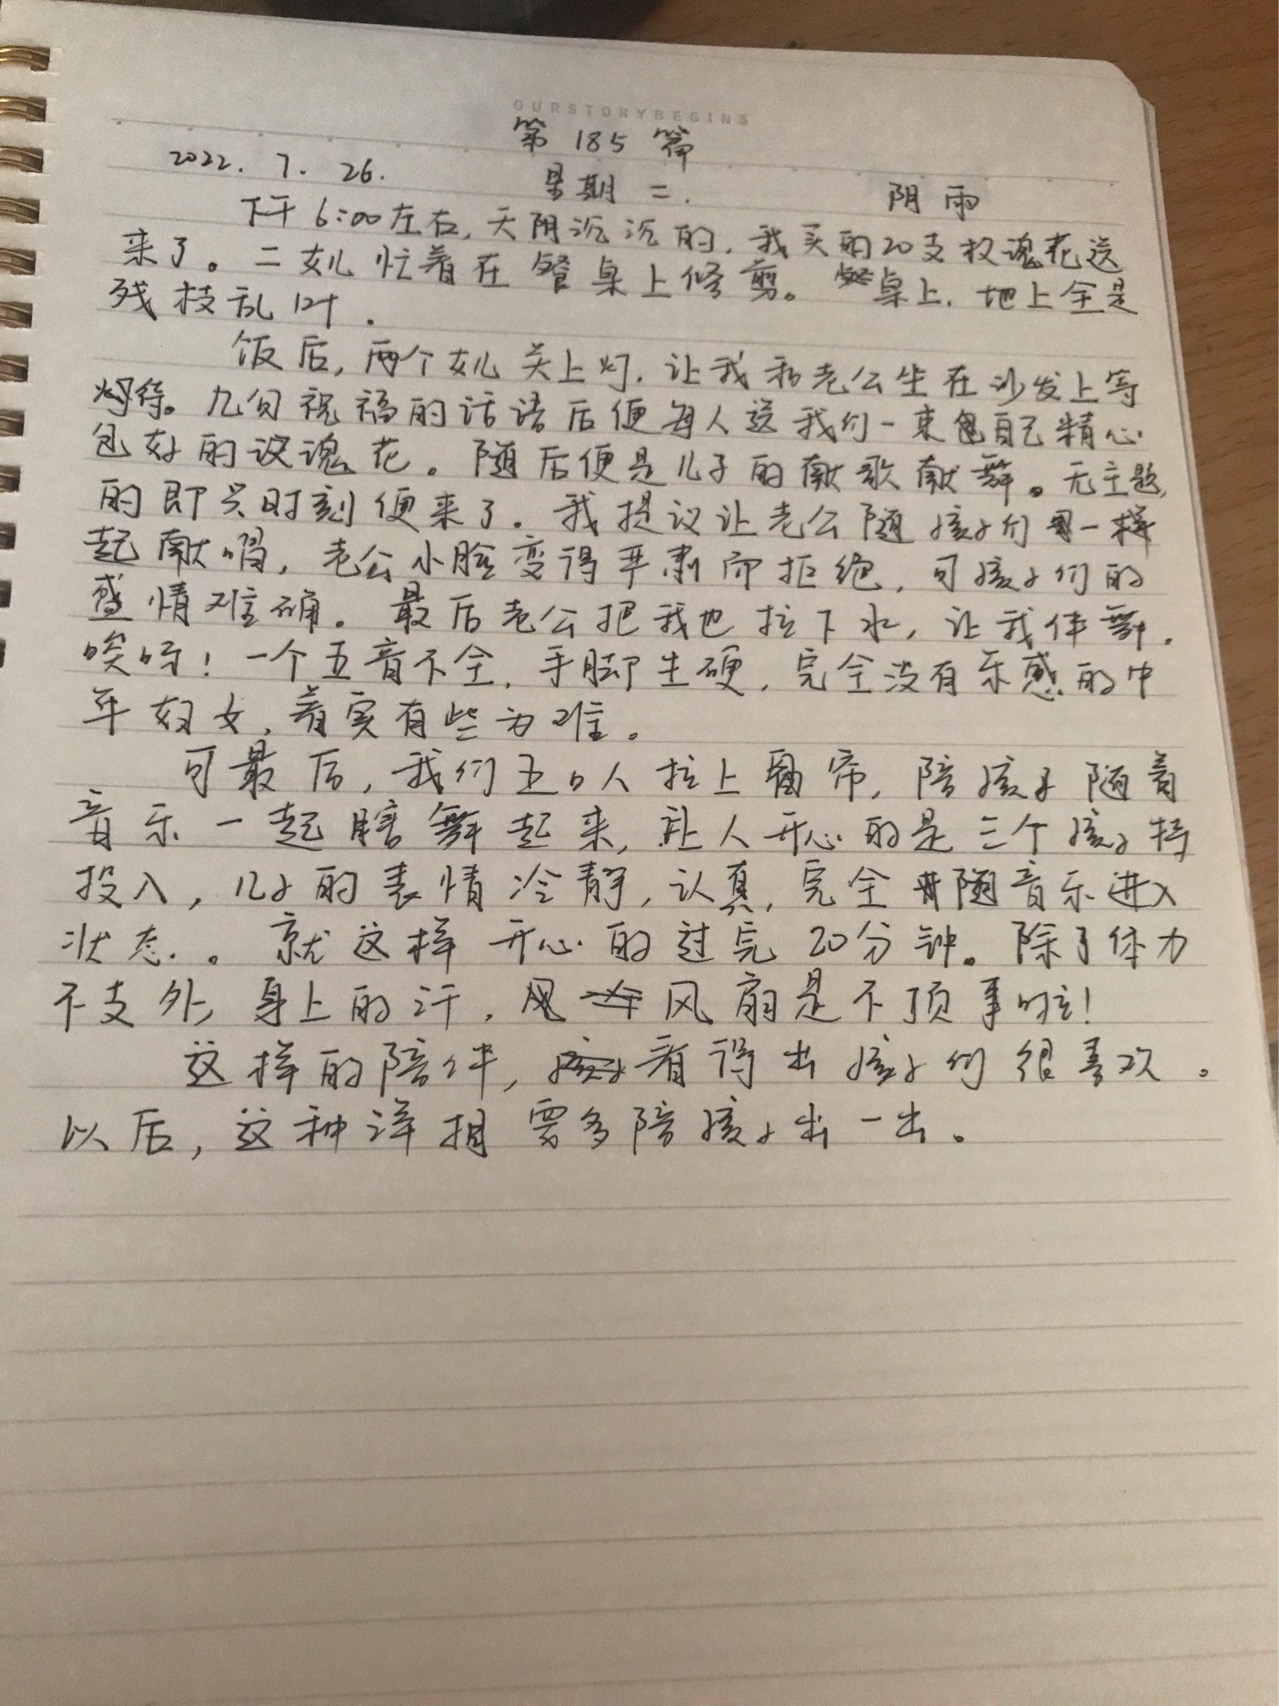 OURSTORYBEGINS
第 185 篇
2022. 7. 26. 星期二. 阴雨
下午 6:00左右，天阴沉沉的，我买的20支玫瑰花送
来了。二女儿忙着在餐桌上修剪。桌上，地上全是
残枝乱叶.
饭后，两个女儿关上灯，让我和老公坐在沙发上等
待。几句祝福的话语后便每人送我们一束自己精心
包好的玫瑰花。随后便是儿子的献歌献舞。无主题
的即兴时刻便来了。我提议让老公随孩子们一样
起献唱，老公小脸变得严肃而拒绝，可孩子们的
盛情难确。最后老公把我也拉下水，让我伴舞.
唉呀！一个五音不全，手脚生硬，完全没有乐感的中
年妇女，着实有些为难。
可最后，我们五口人拉上窗帘，陪孩子随着
音乐一起瞎舞起来，让人开心的是三个孩子特
投入，儿子的表情冷静，认真，完全随音乐进入
状态.。就这样开心的过完20分钟。除了体力
不支外，身上的汗，风扇是不顶事的！
这样的陪伴，看得出孩子们很喜欢。
以后，这种洋相要多陪孩子出一出。